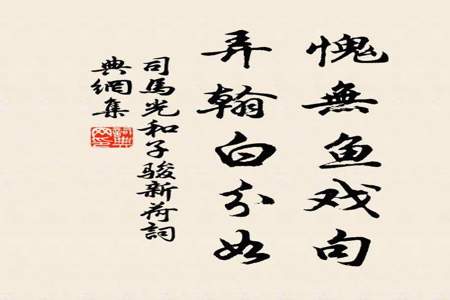 愧無鱼戏句
弄翰白分如
司馬光和子駿新荷詞
典網集